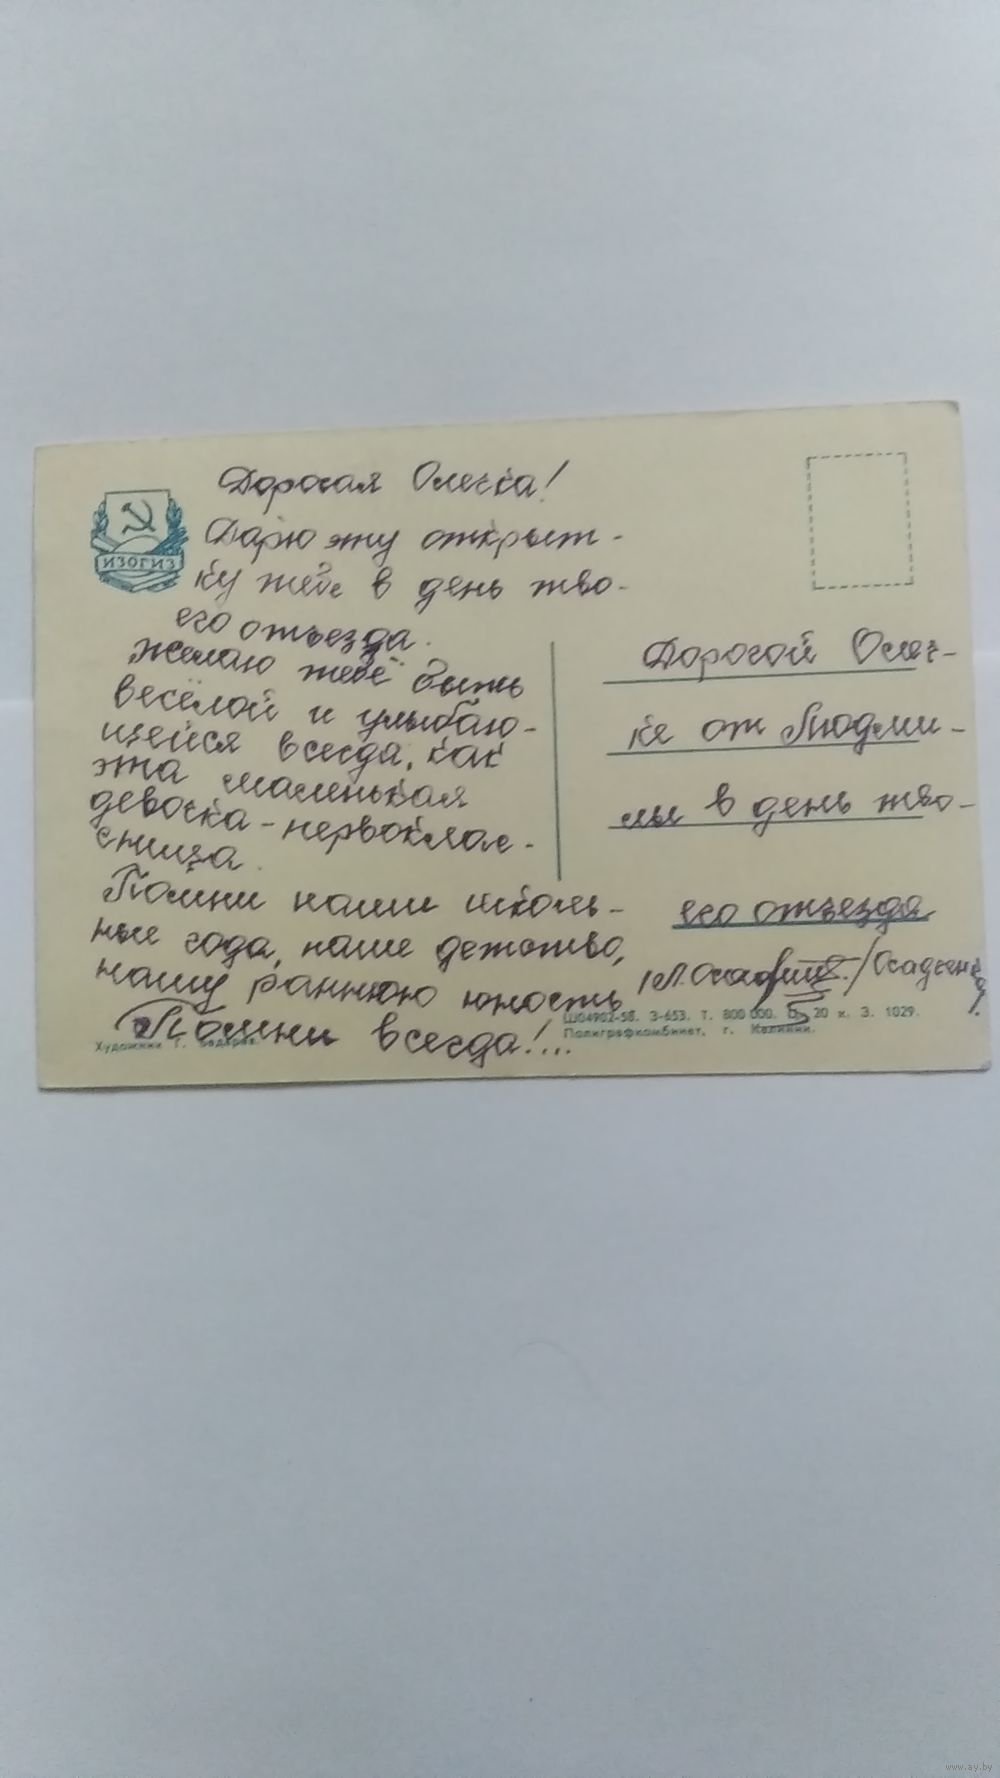 Дорогая Олечка!
Дарю эту открыт-
ку тебе в день тво-
его отъезда.
Желаю тебе быть
весёлой и улыбаю-
щейся всегда, как
эта маленькая
девочка-первоклас-
сница.
Помни наши школь-
ные года, наше детство,
нашу раннюю юность
Помни всегда!...
ИЗОГИЗ
Дорогой Олеч-
ке от Людми-
лы в день тво-
его отъезда
Ш04902-58. З-653. Т. 800 000. 20 к. З. 1029.
Полиграфкомбинат, г. Калинин.
Художник Г.
www.ay.by